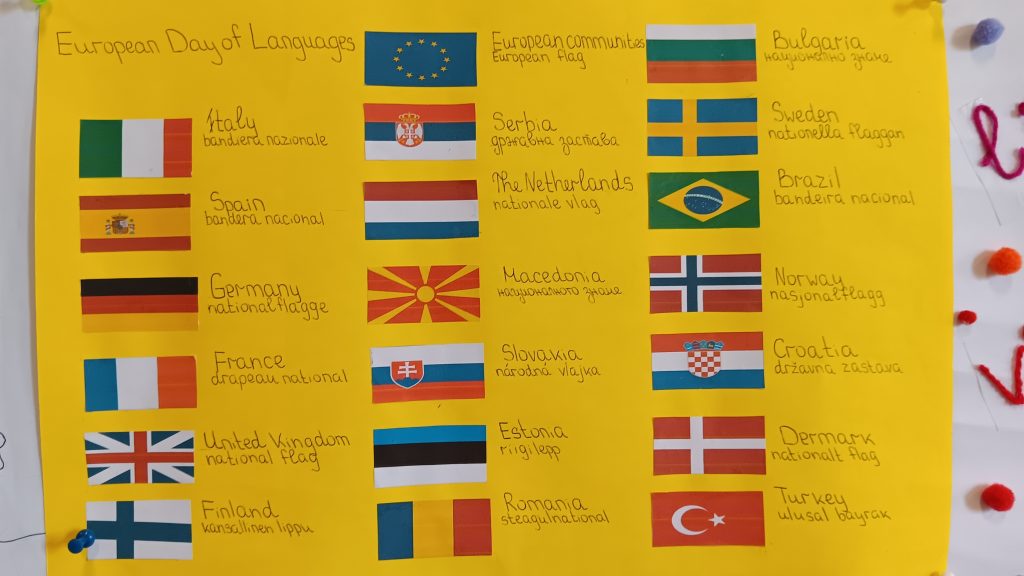 European Day of Languages
Italy
bandiera nazionale
Spain
bandera nacional
Germany
nationalflagge
France
drapeau national
United Kingdom
national flag
Finland
kansallinen lippu
European communites
European flag
Serbia
државна застава
The Netherlands
nationale vlag
Macedonia
националното знаме
Slovakia
národná vlajka
Estonia
riigilepp
Romania
steagulnational
Bulgaria
национално знаме
Sweden
nationella flaggan
Brazil
bandeira nacional
Norway
nasjonalflagg
Croatia
državna zastava
Dermark
nationalt flag
Turkey
ulusal bayrak